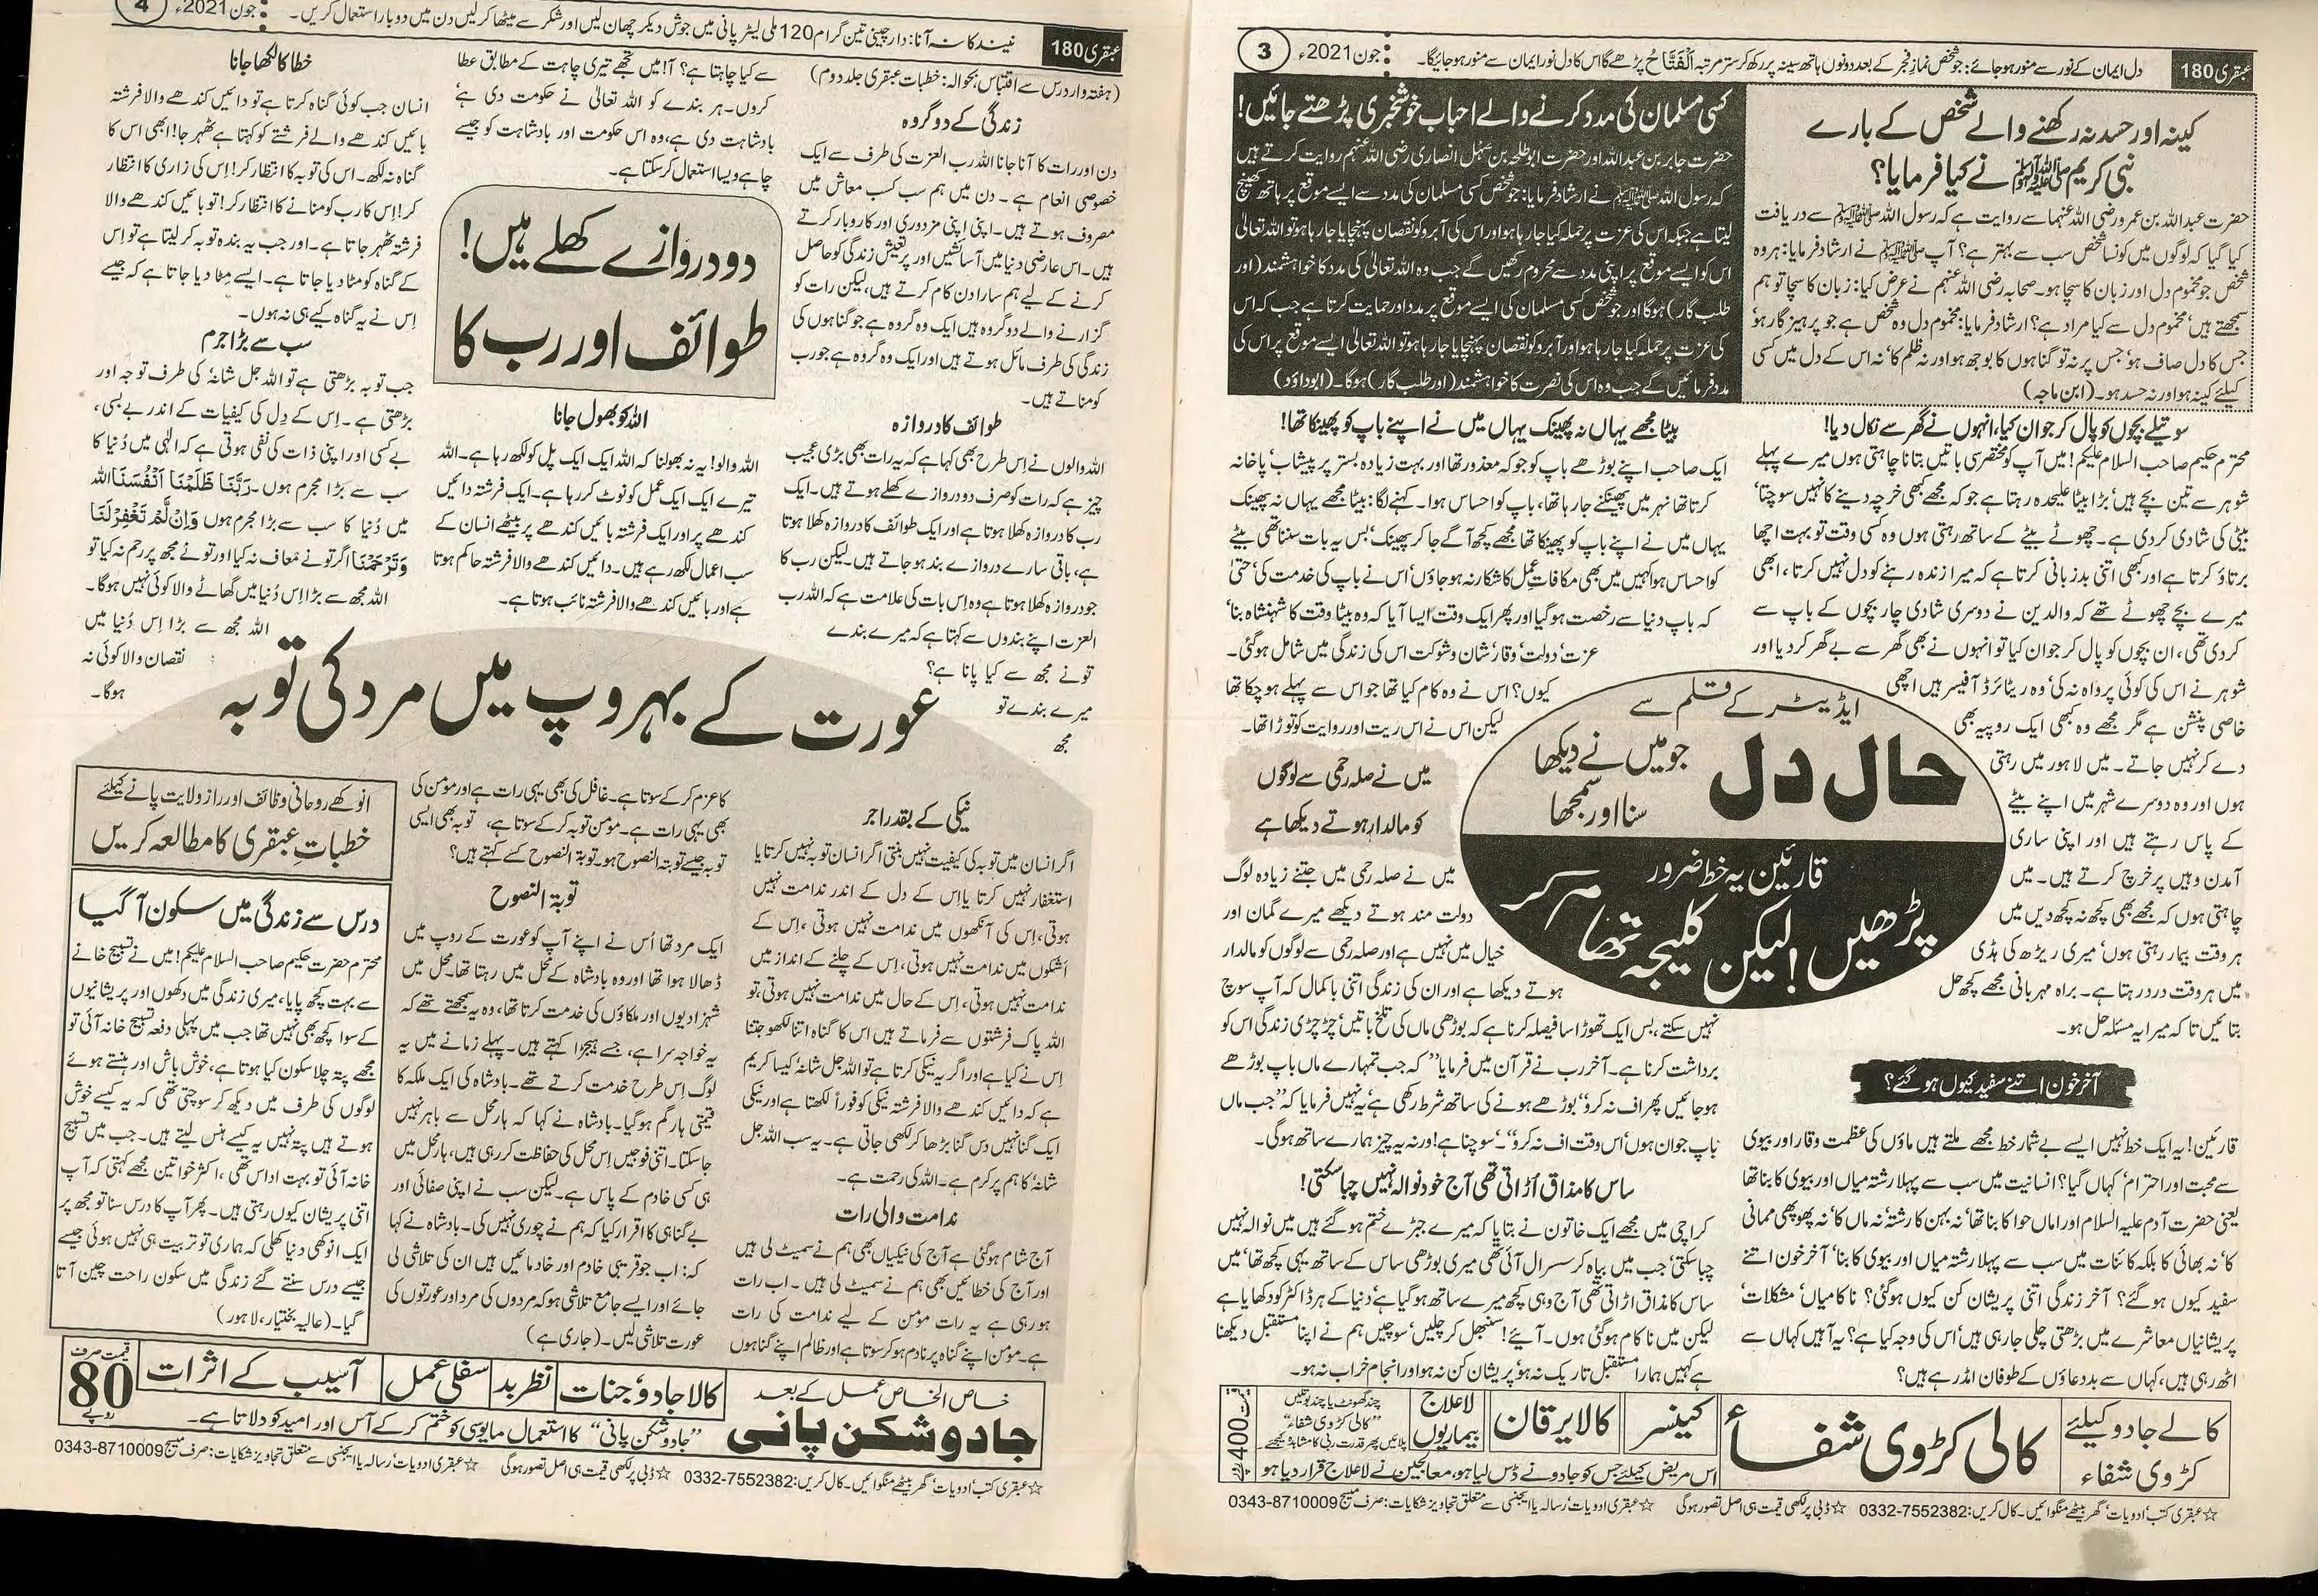 عبقری 180
دل ایمان کے نور سے منور ہو جائے: جو شخص نماز فجر کے بعد دونوں ہاتھ سینہ پر رکھ کر ستر مرتبہ اَلْفَتَّاحُ پڑھے گا اس کا دل نور ایمان سے منور ہو جائیگا۔
جون 2021ء
3
کینہ اور حسد نہ رکھنے والے شخص کے بارے
نبی کریم ﷺ نے کیا فرمایا؟
حضرت عبداللہ بن عمرو رضی اللہ عنہما سے روایت ہے کہ رسول اللہ ﷺ سے دریافت
کیا گیا کہ لوگوں میں کونسا شخص سب سے بہتر ہے؟ آپ ﷺ نے ارشاد فرمایا: ہر وہ
شخص جو مخموم دل اور زبان کا سچا ہو۔ صحابہ رضی اللہ عنہم نے عرض کیا: زبان کا سچا تو ہم
سمجھتے ہیں‘ مخموم دل سے کیا مراد ہے؟ ارشاد فرمایا: مخموم دل وہ شخص ہے جو پرہیز گار ہو‘
جس کا دل صاف ہو‘ جس پر نہ تو گناہوں کا بوجھ ہو اور نہ ظلم کا‘ نہ اس کے دل میں کسی
کیلئے کینہ ہو اور نہ حسد ہو۔ (ابن ماجہ)
کسی مسلمان کی مدد کرنے والے احباب خوشخبری پڑھتے جائیں!
حضرت جابر بن عبداللہ اور حضرت ابوطلحہ بن سہل انصاری رضی اللہ عنہم روایت کرتے ہیں
کہ رسول اللہ ﷺ نے ارشاد فرمایا: جو شخص کسی مسلمان کی مدد سے ایسے موقع پر ہاتھ کھینچ
لیتا ہے جبکہ اس کی عزت پر حملہ کیا جا رہا ہو اور اس کی آبرو کو نقصان پہنچایا جا رہا ہو تو اللہ تعالیٰ
اس کو ایسے موقع پر اپنی مدد سے محروم رکھیں گے جب وہ اللہ تعالیٰ کی مدد کا خواہشمند (اور
طلب گار) ہوگا اور جو شخص کسی مسلمان کی ایسے موقع پر مدد اور حمایت کرتا ہے جب کہ اس
کی عزت پر حملہ کیا جا رہا ہو اور آبرو کو نقصان پہنچایا جا رہا ہو تو اللہ تعالیٰ ایسے موقع پر اس کی
مدد فرمائیں گے جب وہ اس کی نصرت کا خواہشمند (اور طلب گار) ہوگا۔ (ابوداؤد)
سوتیلے بچوں کو پال کر جوان کیا، انہوں نے گھر سے نکال دیا!
محترم حکیم صاحب السلام علیکم! میں آپ کو مختصر سی باتیں بتانا چاہتی ہوں میرے پہلے
شوہر سے تین بچے ہیں‘ بڑا بیٹا علیحدہ رہتا ہے جو کہ مجھے کبھی خرچہ دینے کا نہیں سوچتا‘
بیٹی کی شادی کردی ہے۔ چھوٹے بیٹے کے ساتھ رہتی ہوں وہ کسی وقت تو بہت اچھا
برتاؤ کرتا ہے اور کبھی اتنی بدزبانی کرتا ہے کہ میرا زندہ رہنے کو دل نہیں کرتا، ابھی
میرے بچے چھوٹے تھے کہ والدین نے دوسری شادی چار بچوں کے باپ سے
کردی تھی، ان بچوں کو پال کر جوان کیا تو انہوں نے بھی گھر سے بے گھر کر دیا اور
شوہر نے اس کی کوئی پرواہ نہ کی‘ وہ ریٹائرڈ آفیسر ہیں اچھی
خاصی پنشن ہے مگر مجھے وہ کبھی ایک روپیہ بھی
دے کر نہیں جاتے۔ میں لاہور میں رہتی
ہوں اور وہ دوسرے شہر میں اپنے بیٹے
کے پاس رہتے ہیں اور اپنی ساری
آمدن وہیں پر خرچ کرتے ہیں۔ میں
چاہتی ہوں کہ مجھے بھی کچھ نہ کچھ دیں میں
ہر وقت بیمار رہتی ہوں‘ میری ریڑھ کی ہڈی
میں ہر وقت درد رہتا ہے۔ براہ مہربانی مجھے کچھ حل
بتائیں تا کہ میرا یہ مسئلہ حل ہو۔
آخر خون اتنے سفید کیوں ہو گئے؟
قارئین! یہ ایک خط نہیں ایسے بے شمار خط مجھے ملتے ہیں ماؤں کی عظمت وقار اور بیوی
سے محبت اور احترام‘ کہاں گیا؟ انسانیت میں سب سے پہلا رشتہ میاں اور بیوی کا بنا تھا
یعنی حضرت آدم علیہ السلام اور اماں حوا کا بنا تھا‘ نہ بہن کا رشتہ‘ نہ ماں کا‘ نہ پھوپھی ممانی
کا‘ نہ بھائی کا بلکہ کائنات میں سب سے پہلا رشتہ میاں اور بیوی کا بنا‘ آخر خون اتنے
سفید کیوں ہو گئے؟ آخر زندگی اتنی پریشان کن کیوں ہوگئی؟ ناکامیاں‘ مشکلات‘
پریشانیاں معاشرے میں بڑھتی چلی جا رہی ہیں‘ اس کی وجہ کیا ہے؟ یہ آہیں کہاں سے
اٹھ رہی ہیں، کہاں سے بددعاؤں کے طوفان امڈ رہے ہیں؟
ایڈیٹر کے قلم سے
حال دل
جو میں نے دیکھا
سنا اور سمجھا
قارئین یہ خط ضرور
پڑھیں! لیکن کلیجہ تھام کر
بیٹا مجھے یہاں نہ پھینک یہاں میں نے اپنے باپ کو پھینکا تھا!
ایک صاحب اپنے بوڑھے باپ کو جو کہ معذور تھا اور بہت زیادہ بستر پر پیشاب‘ پاخانہ
کرتا تھا نہر میں پھینکنے جا رہا تھا، باپ کو احساس ہوا۔ کہنے لگا: بیٹا مجھے یہاں نہ پھینک
یہاں میں نے اپنے باپ کو پھینکا تھا مجھے کچھ آگے جا کر پھینک‘ بس یہ بات سننا تھی بیٹے
کو احساس ہوا کہیں میں بھی مکافات عمل کا شکار نہ ہو جاؤں‘ اس نے باپ کی خدمت کی‘ حتیٰ
کہ باپ دنیا سے رخصت ہو گیا اور پھر ایک وقت ایسا آیا کہ وہ بیٹا وقت کا شہنشاہ بنا‘
عزت‘ دولت‘ وقار‘ شان و شوکت اس کی زندگی میں شامل ہوگئی۔
کیوں؟ اس نے وہ کام کیا تھا جو اس سے پہلے ہو چکا تھا
لیکن اس نے اس ریت اور روایت کو توڑا تھا۔
میں نے صلہ رحمی سے لوگوں
کو مالدار ہوتے دیکھا ہے
میں نے صلہ رحمی میں جتنے زیادہ لوگ
دولت مند ہوتے دیکھے میرے گمان اور
خیال میں نہیں ہے اور صلہ رحمی سے لوگوں کو مالدار
ہوتے دیکھا ہے اور ان کی زندگی اتنی باکمال کہ آپ سوچ
نہیں سکتے، بس ایک تھوڑا سا فیصلہ کرنا ہے کہ بوڑھی ماں کی تلخ باتیں‘ چڑچڑی زندگی اس کو
برداشت کرنا ہے۔ آخر رب نے قرآن میں فرمایا ”کہ جب تمہارے ماں باپ بوڑھے
ہو جائیں پھر اف نہ کرو“ بوڑھے ہونے کی ساتھ شرط رکھی ہے‘ یہ نہیں فرمایا کہ ”جب ماں
باپ جوان ہوں‘ اس وقت اف نہ کرو“۔ سوچنا ہے! ورنہ یہ چیز ہمارے ساتھ ہوگی۔
ساس کا مذاق اڑاتی تھی آج خود نوالہ نہیں چبا سکتی!
کراچی میں مجھے ایک خاتون نے بتایا کہ میرے جبڑے ختم ہو گئے ہیں میں نوالہ نہیں
چبا سکتی‘ جب میں بیاہ کر سسرال آئی تھی میری بوڑھی ساس کے ساتھ یہی کچھ تھا‘ میں
ساس کا مذاق اڑاتی تھی آج وہی کچھ میرے ساتھ ہو گیا ہے‘ دنیا کے ہر ڈاکٹر کو دکھایا ہے
لیکن میں ناکام ہوگئی ہوں۔ آئیے! سنبھل کر چلیں‘ سوچیں ہم نے اپنا مستقبل دیکھنا
ہے کہیں ہمارا مستقبل تاریک نہ ہو‘ پریشان کن نہ ہو اور انجام خراب نہ ہو۔
کالے جادو کیلئے
کڑوی شفاء
کالی کڑوی شفاء
کینسر
کالا یرقان
لاعلاج
بیماریوں
چند گھونٹ یا چند بوتلیں
”کالی کڑوی شفاء“
پلائیں پھر قدرت ربی کا مشاہدہ کیجئے
اس مریض کیلئے جس کو جادو نے ڈس لیا ہو، معالجین نے لاعلاج قرار دیا ہو
قیمت 400 روپے
☆عبقری کتب‘ ادویات‘ گھر بیٹھے منگوائیں۔ کال کریں: 0332-7552382 ☆ڈبی پر لکھی قیمت ہی اصل تصور ہوگی ☆عبقری ادویات‘ رسالہ یا ایجنسی سے متعلق تجاویز شکایات: صرف میسج 0343-8710009
عبقری 180
نیند کا نہ آنا: دار چینی تین گرام 120 ملی لیٹر پانی میں جوش دیکر چھان لیں اور شکر سے میٹھا کر لیں دن میں دو بار استعمال کریں۔
جون 2021ء
4
(ہفتہ وار درس سے اقتباس، بحوالہ: خطبات عبقری جلد دوم)
زندگی کے دو گروہ
دن اور رات کا آنا جانا اللہ رب العزت کی طرف سے ایک
خصوصی انعام ہے۔ دن میں ہم سب کسب معاش میں
مصروف ہوتے ہیں۔ اپنی اپنی مزدوری اور کاروبار کرتے
ہیں۔ اس عارضی دنیا میں آسائشیں اور پرتعیش زندگی کو حاصل
کرنے کے لیے ہم سارا دن کام کرتے ہیں، لیکن رات کو
گزارنے والے دو گروہ ہیں ایک وہ گروہ ہے جو گناہوں کی
زندگی کی طرف مائل ہوتے ہیں اور ایک وہ گروہ ہے جو رب
کو مناتے ہیں۔
طوائف کا دروازہ
اللہ والوں نے اس طرح بھی کہا ہے کہ یہ رات بھی بڑی عجیب
چیز ہے کہ رات کو صرف دو دروازے کھلے ہوتے ہیں۔ ایک
رب کا دروازہ کھلا ہوتا ہے اور ایک طوائف کا دروازہ کھلا ہوتا
ہے، باقی سارے دروازے بند ہو جاتے ہیں۔ لیکن رب کا
جو دروازہ کھلا ہوتا ہے وہ اس بات کی علامت ہے کہ اللہ رب
العزت اپنے بندوں سے کہتا ہے کہ میرے بندے
تو نے مجھ سے کیا پانا ہے؟
میرے بندے تو
مجھ
سے کیا چاہتا ہے؟ آ! میں تجھے تیری چاہت کے مطابق عطا
کروں۔ ہر بندے کو اللہ تعالیٰ نے حکومت دی ہے‘
بادشاہت دی ہے، وہ اس حکومت اور بادشاہت کو جیسے
چاہے ویسا استعمال کر سکتا ہے۔
دو دروازے کھلے ہیں!
طوائف اور رب کا
اللہ کو بھول جانا
اللہ والو! یہ نہ بھولنا کہ اللہ ایک ایک پل کو لکھ رہا ہے۔ اللہ
تیرے ایک ایک عمل کو نوٹ کر رہا ہے۔ ایک فرشتہ دائیں
کندھے پر اور ایک فرشتہ بائیں کندھے پر بیٹھے انسان کے
سب اعمال لکھ رہے ہیں۔ دائیں کندھے والا فرشتہ حاکم ہوتا
ہے اور بائیں کندھے والا فرشتہ نائب ہوتا ہے۔
خطا کا لکھا جانا
انسان جب کوئی گناہ کرتا ہے تو دائیں کندھے والا فرشتہ
بائیں کندھے والے فرشتے کو کہتا ہے ٹھہر جا! ابھی اس کا
گناہ نہ لکھ۔ اس کی توبہ کا انتظار کر! اِس کی زاری کا انتظار
کر! اس کا رب کو منانے کا انتظار کر! تو بائیں کندھے والا
فرشتہ ٹھہر جاتا ہے۔ اور جب یہ بندہ توبہ کر لیتا ہے تو اِس
کے گناہ کو مٹا دیا جاتا ہے۔ ایسے مِٹا دیا جاتا ہے کہ جیسے
اِس نے یہ گناہ کیے ہی نہ ہوں۔
سب سے بڑا جرم
جب توبہ بڑھتی ہے تو اللہ جل شانہٗ کی طرف توجہ اور
بڑھتی ہے۔ اِس کے دِل کی کیفیات کے اندر بے بسی،
بے کسی اور اپنی ذات کی نفی ہوتی ہے کہ الٰہی میں دُنیا کا
سب سے بڑا مجرم ہوں۔ رَبَّنَا ظَلَمْنَا اَنْفُسَنَا اللہ
میں دُنیا کا سب سے بڑا مجرم ہوں وَاِنْ لَّمْ تَغْفِرْلَنَا
وَتَرْحَمْنَا اگر تو نے معاف نہ کیا اور تو نے مجھ پر رحم نہ کیا تو
اللہ مجھ سے بڑا اِس دُنیا میں گھاٹے والا کوئی نہیں ہوگا۔
اللہ مجھ سے بڑا اِس دُنیا میں
نقصان والا کوئی نہ
ہوگا۔
عورت کے بہروپ میں مرد کی توبہ
نیکی کے بقدر اجر
اگر انسان میں توبہ کی کیفیت نہیں بنتی اگر انسان توبہ نہیں کرتا یا
استغفار نہیں کرتا یا اِس کے دل کے اندر ندامت نہیں
ہوتی، اِس کی آنکھوں میں ندامت نہیں ہوتی، اِس کے
اَشکوں میں ندامت نہیں ہوتی، اِس کے چلنے کے انداز میں
ندامت نہیں ہوتی، اِس کے حال میں ندامت نہیں ہوتی، تو
اللہ پاک فرشتوں سے فرماتے ہیں اس کا گناہ اتنا لکھو جتنا
اِس نے کیا ہے اور اگر یہ نیکی کرتا ہے تو اللہ جل شانہٗ کیسا کریم
ہے کہ دائیں کندھے والا فرشتہ نیکی کو فوراً لکھتا ہے اور نیکی
ایک گنا نہیں دس گنا بڑھا کر لکھی جاتی ہے۔ یہ سب اللہ جل
شانہٗ کا ہم پر کرم ہے۔ اللہ کی رحمت ہے۔
ندامت والی رات
آج شام ہوگئی ہے آج کی نیکیاں بھی ہم نے سمیٹ لی ہیں
اور آج کی خطائیں بھی ہم نے سمیٹ لی ہیں۔ اب رات
ہو رہی ہے یہ رات مؤمن کے لیے ندامت کی رات
ہے۔ مؤمن اپنے گناہ پر نادم ہو کر سوتا ہے اور ظالم اپنے گناہوں
کا عزم کر کے سوتا ہے۔ غافل کی بھی یہی رات ہے اور مؤمن کی
بھی یہی رات ہے۔ مؤمن توبہ کر کے سوتا ہے، توبہ بھی ایسی
توبہ جیسے توبۃ النصوح ہو۔ توبۃ النصوح کسے کہتے ہیں؟
توبۃ النصوح
ایک مرد تھا اُس نے اپنے آپ کو عورت کے روپ میں
ڈھالا ہوا تھا اور وہ بادشاہ کے محل میں رہتا تھا۔ محل میں
شہزادیوں اور ملکاؤں کی خدمت کرتا تھا، وہ یہ سمجھتے تھے کہ
یہ خواجہ سرا ہے، جسے ہیجڑا کہتے ہیں۔ پہلے زمانے میں یہ
لوگ اِس طرح خدمت کرتے تھے۔ بادشاہ کی ایک ملکہ کا
قیمتی ہار گم ہو گیا۔ بادشاہ نے کہا کہ ہار محل سے باہر نہیں
جا سکتا۔ اتنی فوجیں اِس محل کی حفاظت کر رہی ہیں، ہار محل میں
ہی کسی خادم کے پاس ہے۔ لیکن سب نے اپنی صفائی اور
بے گناہی کا اقرار کیا کہ ہم نے چوری نہیں کی۔ بادشاہ نے کہا
کہ: اب جو قریبی خادم اور خادمائیں ہیں ان کی تلاشی لی
جائے اور ایسے جامع تلاشی ہو کہ مردوں کی مرد اور عورتوں کی
عورت تلاشی لیں۔ (جاری ہے)
انوکھے روحانی وظائف اور راز ولایت پانے کیلئے
خطباتِ عبقری کا مطالعہ کریں
درس سے زندگی میں سکون آ گیا
محترم حضرت حکیم صاحب السلام علیکم! میں نے تسبیح خانے
سے بہت کچھ پایا، میری زندگی میں دکھوں اور پریشانیوں
کے سوا کچھ بھی نہیں تھا جب میں پہلی دفعہ تسبیح خانہ آئی تو
مجھے پتہ چلا سکون کیا ہوتا ہے، خوش باش اور ہنستے ہوئے
لوگوں کی طرف میں دیکھ کر سوچتی تھی کہ یہ کیسے خوش
ہوتے ہیں پتہ نہیں یہ کیسے ہنس لیتے ہیں۔ جب میں تسبیح
خانہ آئی تو بہت اداس تھی، اکثر خواتین مجھے کہتی کہ آپ
اتنی پریشان کیوں رہتی ہیں۔ پھر آپ کا درس سنا تو مجھ پر
ایک انوکھی دنیا کھلی کہ ہماری تو تربیت ہی نہیں ہوئی جیسے
جیسے درس سنتے گئے زندگی میں سکون راحت چین آتا
گیا۔ (عالیہ بختیار، لاہور)
خاص الخاص عمل کے بعد
جادو شکن پانی
کالا جادو‘ جنات
نظر بد
سفلی عمل
آسیب کے اثرات
”جادو شکن پانی“ کا استعمال مایوسی کو ختم کر کے آس اور امید کو دلاتا ہے۔
قیمت صرف
80
روپے
☆عبقری کتب‘ ادویات‘ گھر بیٹھے منگوائیں۔ کال کریں: 0332-7552382 ☆ڈبی پر لکھی قیمت ہی اصل تصور ہوگی ☆عبقری ادویات‘ رسالہ یا ایجنسی سے متعلق تجاویز شکایات: صرف میسج 0343-8710009